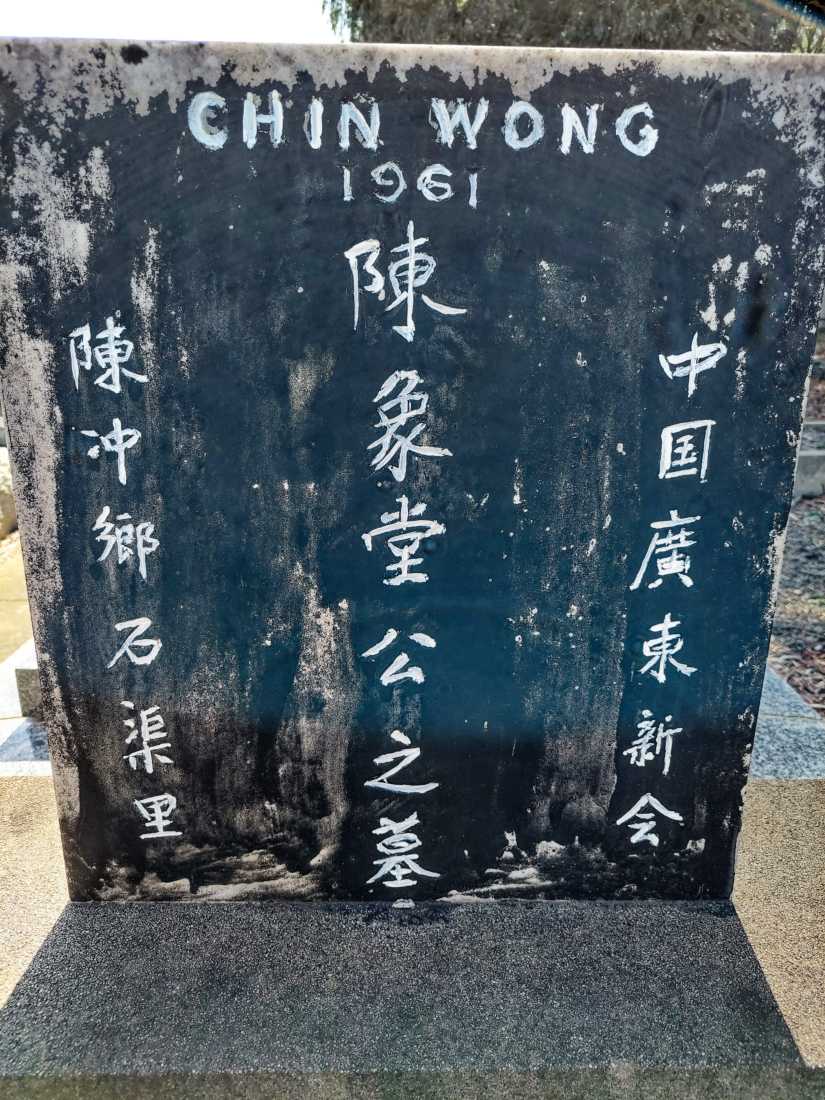 CHIN WONG
1961
中国廣東新会
陳象堂公之墓
陳冲鄉石渠里